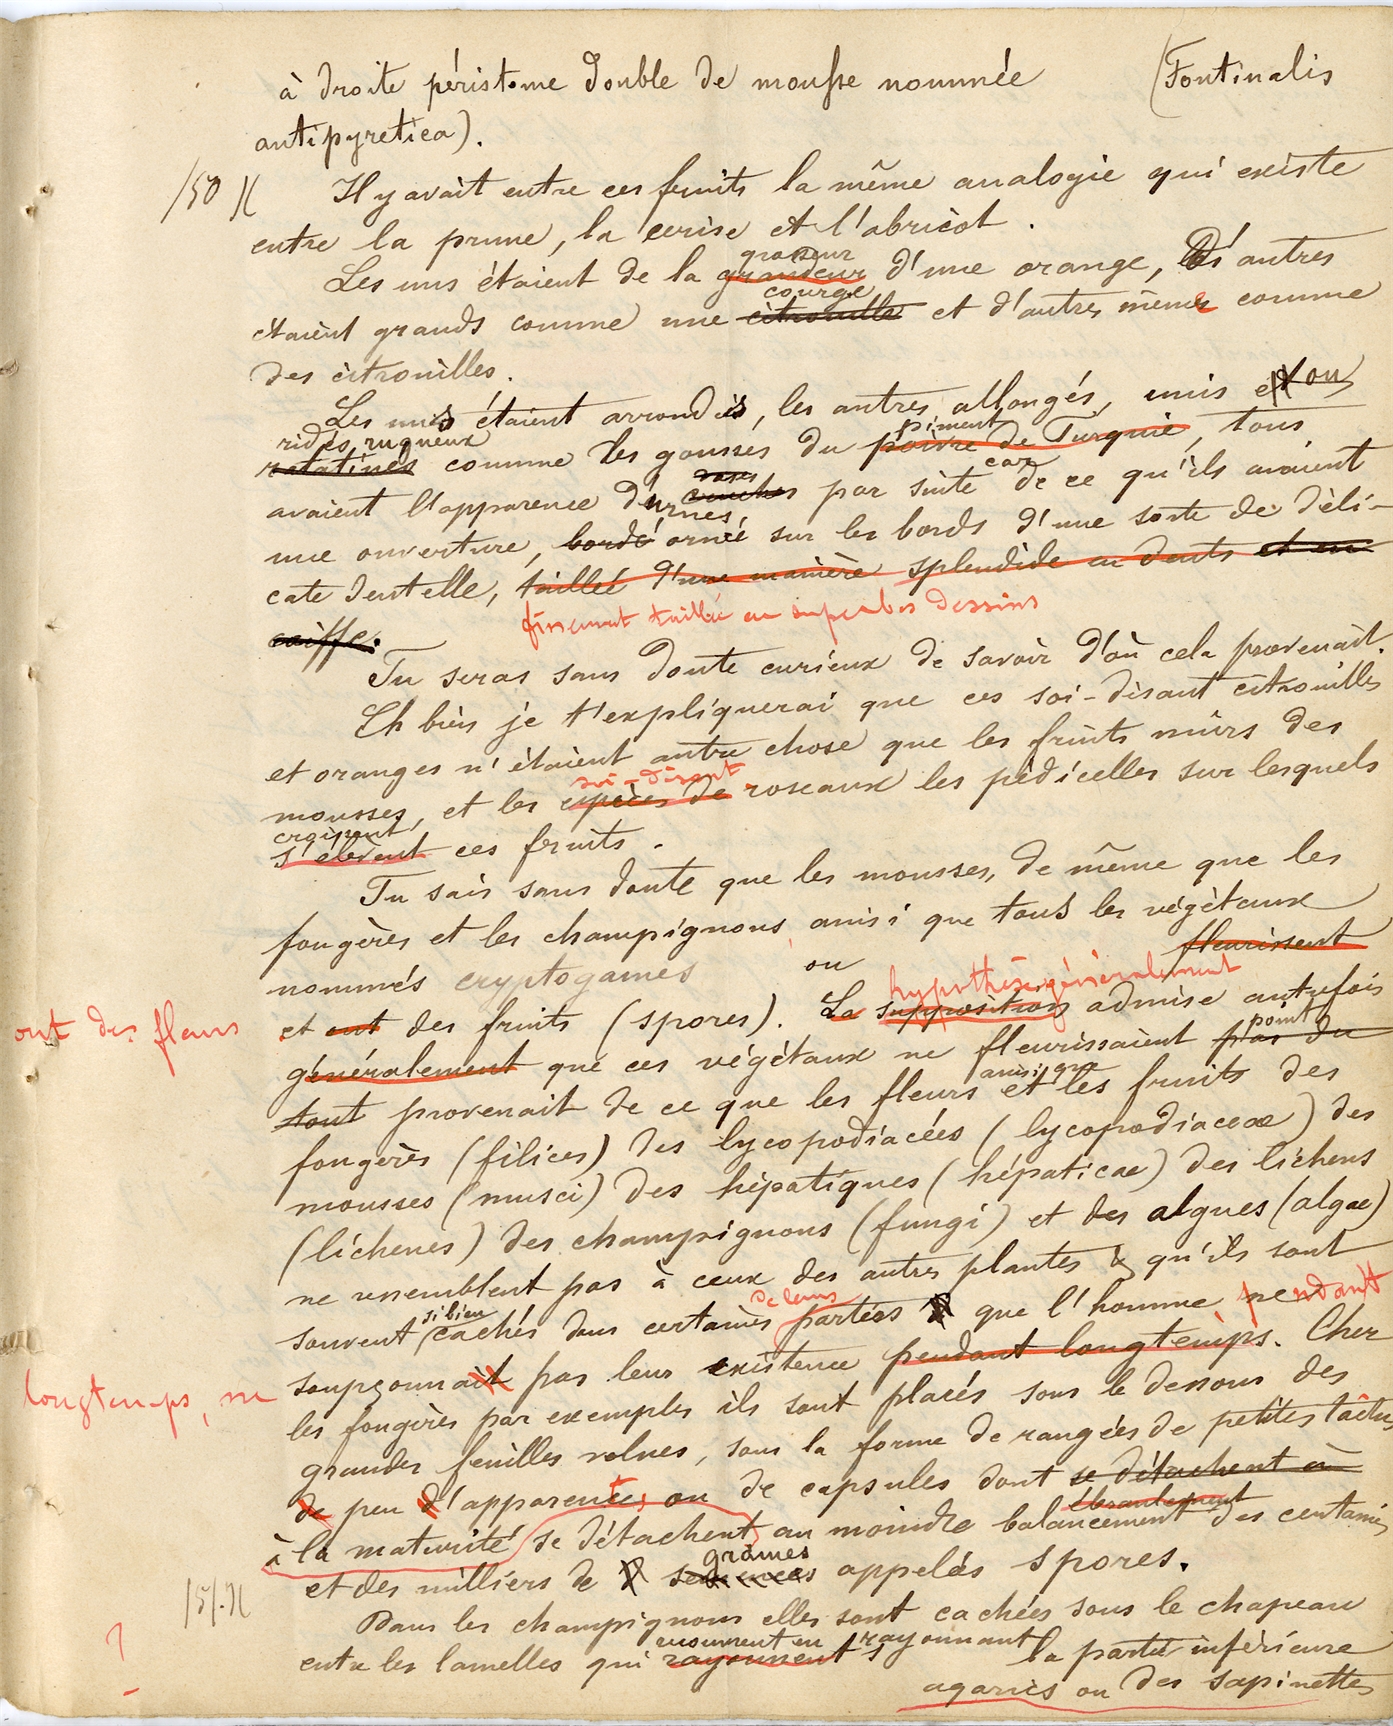 à droite péristome double de mousse nommée (Fontinalis
antipyretica).
/50 )( Il y avait entre ces fruits la même analogie qui existe
entre la prune, la cerise et l'abricot.
grosseur
Les uns étaient de la grandeur d'une orange, D'autres
courge
étaient grands comme une citrouille et d'autres mêmes comme
des citrouilles.
Les uns étaient arrondis, les autres allongés, unis et ou
ridés, rugueux piment
ratatinés comme les gousses du poivre de Turquie, tous
vases car
avaient l'apparence d'urnes, par suite de ce qu'ils avaient
une ouverture, bordé orné sur les bords d'une sorte de déli-
cate dentelle, taillée d'une manière splendide en dents et en
finement taillée en superbes dessins
coiffe.
Tu seras sans doute curieux de savoir d'où cela provenait.
Eh bien je t'expliquerai que ces soi-disant citrouilles
et oranges n'étaient autre chose que les fruits mûrs des
soi-disant
mousses, et les espèces de roseaux les pédicelles sur lesquels
croissent
s'élèvent ces fruits.
Tu sais sans doute que les mousses, de même que les
fougères et les champignons, ainsi que tous les végétaux
nommés cryptogames ou fleurissent
hypothèse généralement
ont des fleurs et ont des fruits (spores). La supposition admise autrefois
point
généralement que ces végétaux ne fleurissaient pas du
ainsi que
tout provenait de ce que les fleurs et les fruits des
fougères (filices) des lycopodiacées (lycopodiaceae) des
mousses (musci) des hépatiques (hépaticae) des lichens
(lichenes) des champignons (fungi) et des algues (algae)
ne ressemblent pas à ceux des autres plantes & qu'ils sont
si bien de leurs
souvent cachés dans certaines parties que l'homme pendant
longtemps, ne soupçonnait pas leur existence pendant longtemps. Chez
les fougères par exemple ils sont placés sous le dessous des
grandes feuilles velues, sous la forme de rangées de petites tâches
de peu d'apparence, ou de capsules dont se détachent à
ébranlement
à la maturité se détachent au moindre balancement des centaines
graines
et des milliers de semences appelés spores.
/51. )( Dans les champignons elles sont cachées sous le chapeau
recouvrent en rayonnant
? entre les lamelles qui rayonnent la partie inférieure
agarics ou des sapinettes